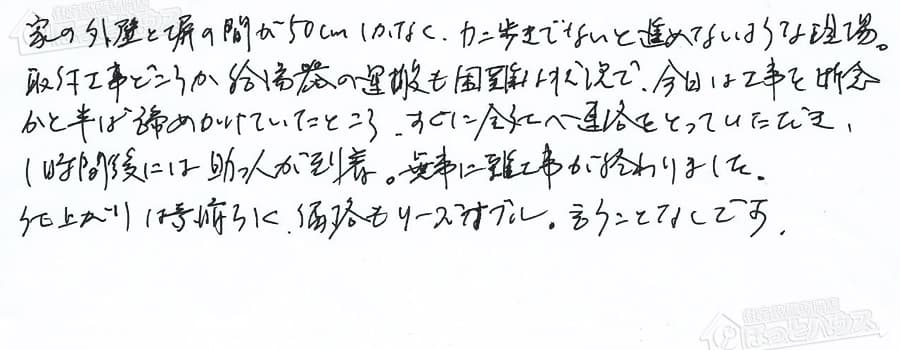 家の外壁と塀の間が50cmしかなく、カニ歩きでないと進めないような現場。
取付工事どころか給湯器の運搬も困難な状況で、今日は工事を断念
かと半ば諦めかけていたところ、すぐに会社へ連絡をとっていただき、
1時間後には助っ人が到着。無事に難工事が終わりました。
仕上がりは素晴らしく、価格もリーズナブル。言うことなしです。
ほっとハウス
ほっとハウス